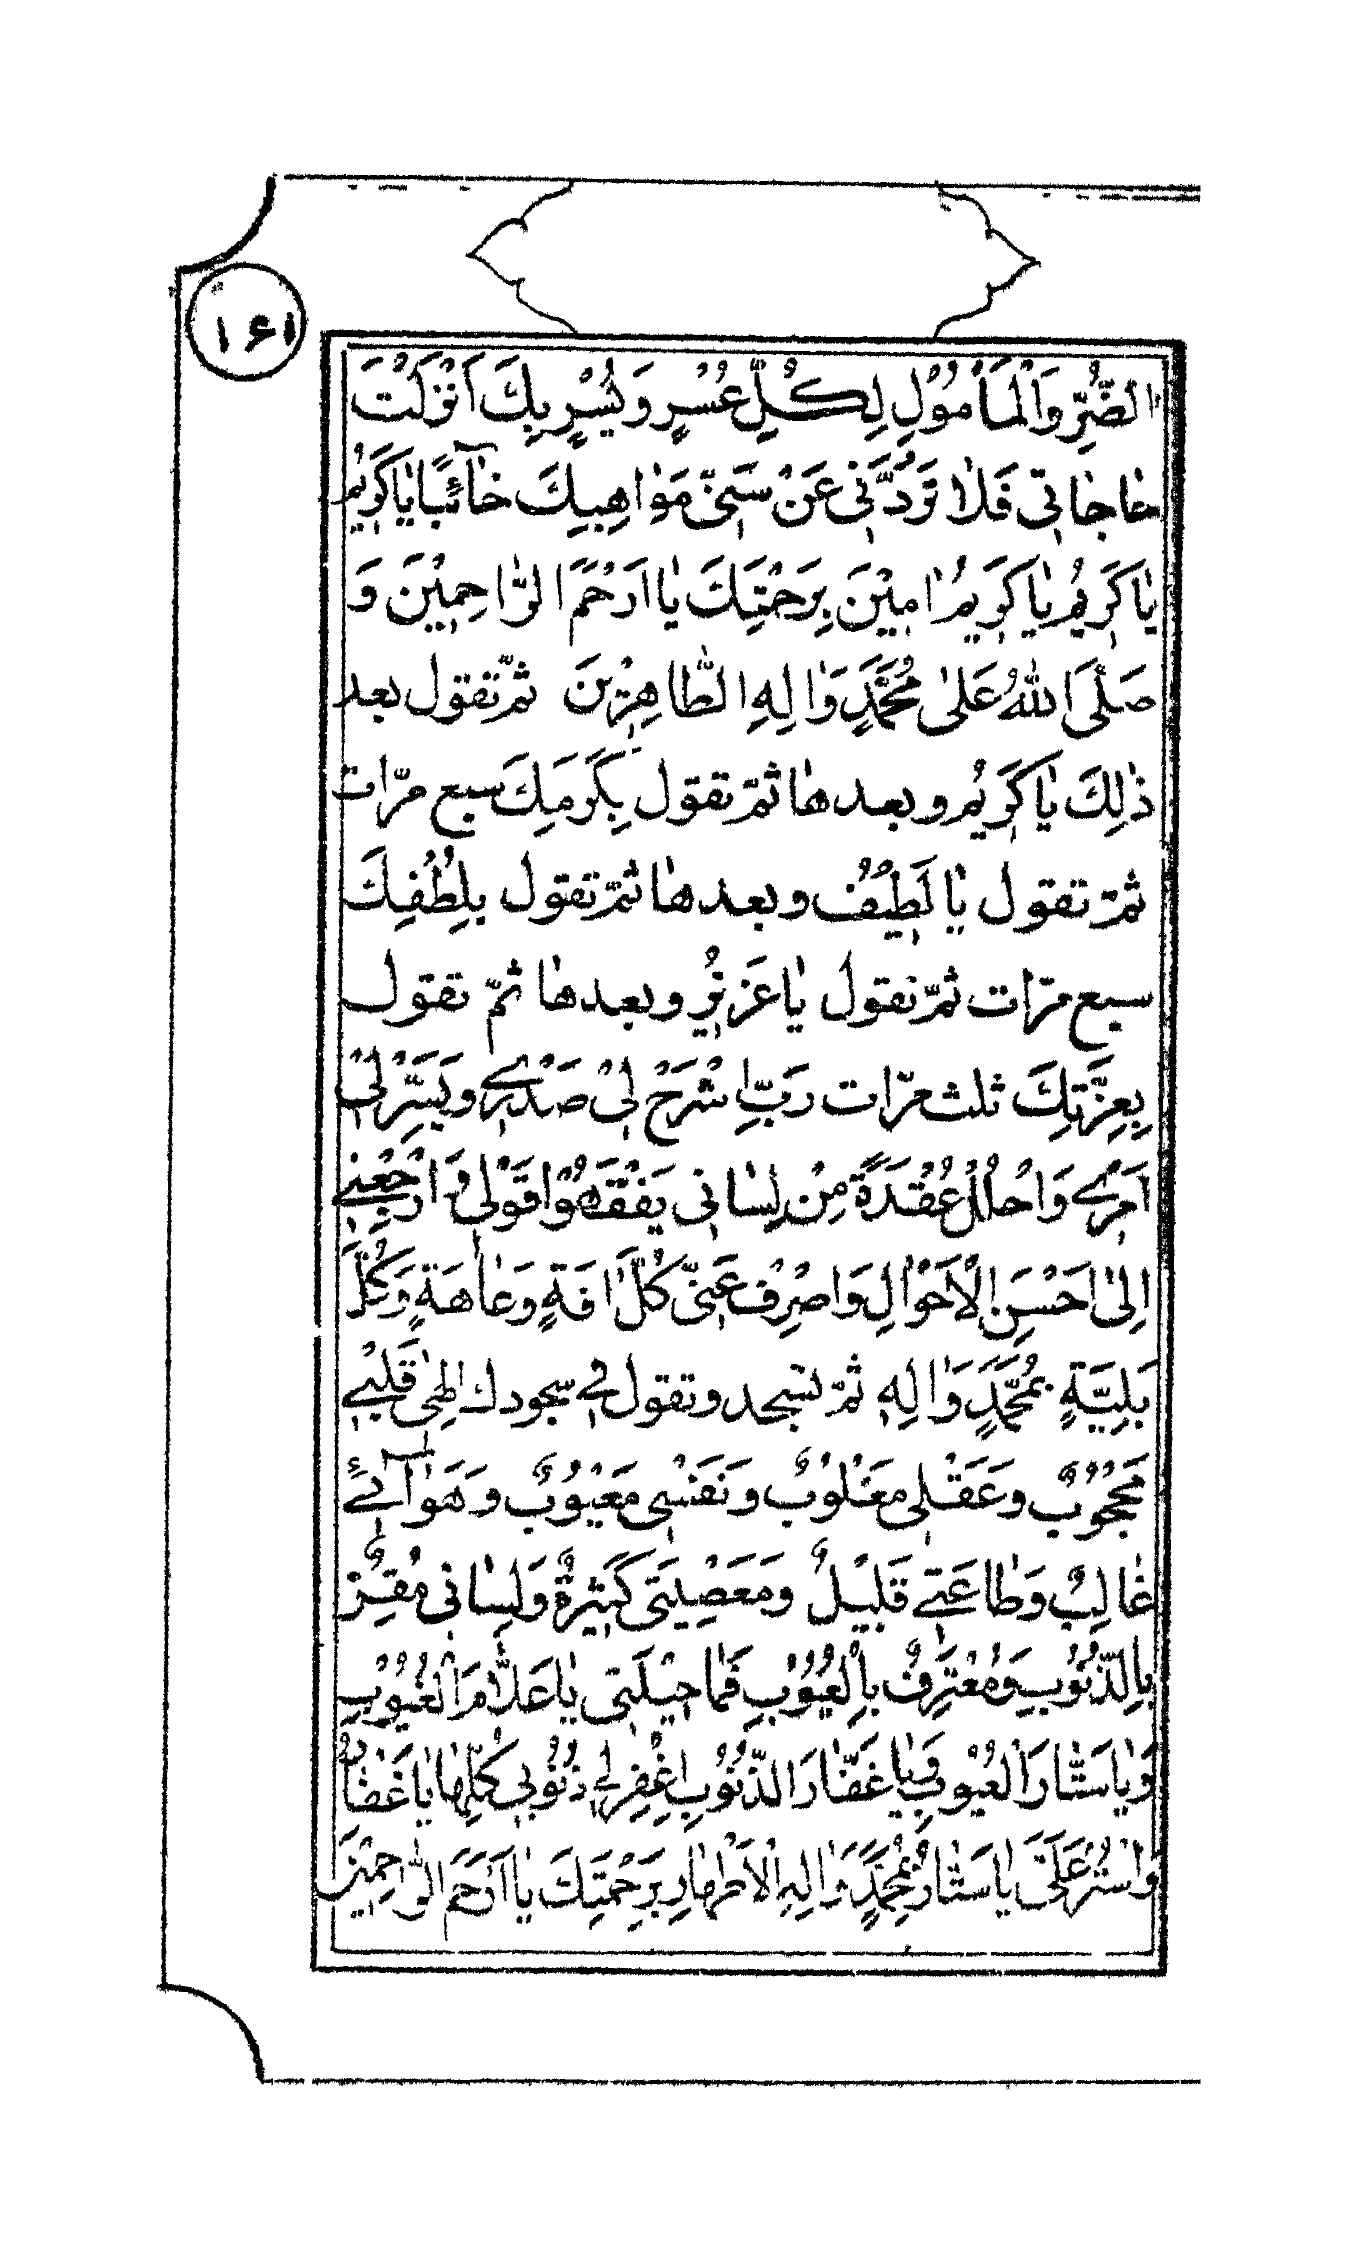 ۱۶۱
الضُّرِّ وَالْمَأْمُوْلِ لِكُلِّ عُسْرٍ وَيُسْرٍ بِكَ اَنْزَلْتُ
حٰاجٰاتِي فَلٰا تَرُدَّنِي عَنْ سَنِيِّ مَوٰاهِبِكَ خٰآئِبًا يٰا كَرِيْمُ
يٰا كَرِيْمُ يٰا كَرِيْمُ اٰمِيْنَ بِرَحْمَتِكَ يٰا اَرْحَمَ الرّٰاحِمِيْنَ وَ
صَلَّى اللّٰهُ عَلىٰ مُحَمَّدٍ وَاٰلِهِ الطّٰاهِرِيْنَ ثمّ تقول بعد
ذٰلِكَ يٰا كَرِيْمُ وبعدهٰا ثمّ تقول بِكَرَمِكَ سبع مرّات
ثمّ تقول يٰا لَطِيْفُ وبعدهٰا ثمّ تقول بِلُطْفِكَ
سبع مرّات ثمّ تقول يٰا عَزِيْزُ وبعدهٰا ثمّ تقول
بِعِزَّتِكَ ثلث مرّات رَبِّ اشْرَحْ لِيْ صَدْرِيْ وَيَسِّرْ لِيْ
اَمْرِيْ وَاحْلُلْ عُقْدَةً مِنْ لِسٰانِي يَفْقَهُوْا قَوْلِي وَارْجِعْنِي
اِلىٰ اَحْسَنِ الْاَحْوٰالِ وَاصْرِفْ عَنِّي كُلَّ اٰفَةٍ وَعٰاهَةٍ وَكُلَّ
بَلِيَّةٍ بِمُحَمَّدٍ وَاٰلِهِ ثمّ تسجد وتقول في سجودك اِلٰهِي قَلْبِي
مَحْجُوْبٌ وَعَقْلِي مَغْلُوْبٌ وَنَفْسِي مَعْيُوْبٌ وَهَوٰآئِي
غٰالِبٌ وَطٰاعَتِي قَلِيْلٌ وَمَعْصِيَتِي كَثِيْرَةٌ وَلِسٰانِي مُقِرٌّ
بِالذُّنُوْبِ وَمُعْتَرِفٌ بِالْعُيُوْبِ فَمٰا حِيْلَتِي يٰا عَلّٰامَ الْغُيُوْبِ
وَيٰا سَتّٰارَ الْعُيُوْبِ وَيٰا غَفّٰارَ الذُّنُوْبِ اغْفِرْ لِي ذُنُوْبِي كُلَّهٰا يٰا غَفّٰارُ
وَاسْتُرْ عَلَيَّ يٰا سَتّٰارُ بِمُحَمَّدٍ وَاٰلِهِ الْاَطْهٰارِ بِرَحْمَتِكَ يٰا اَرْحَمَ الرّٰاحِمِيْنَ